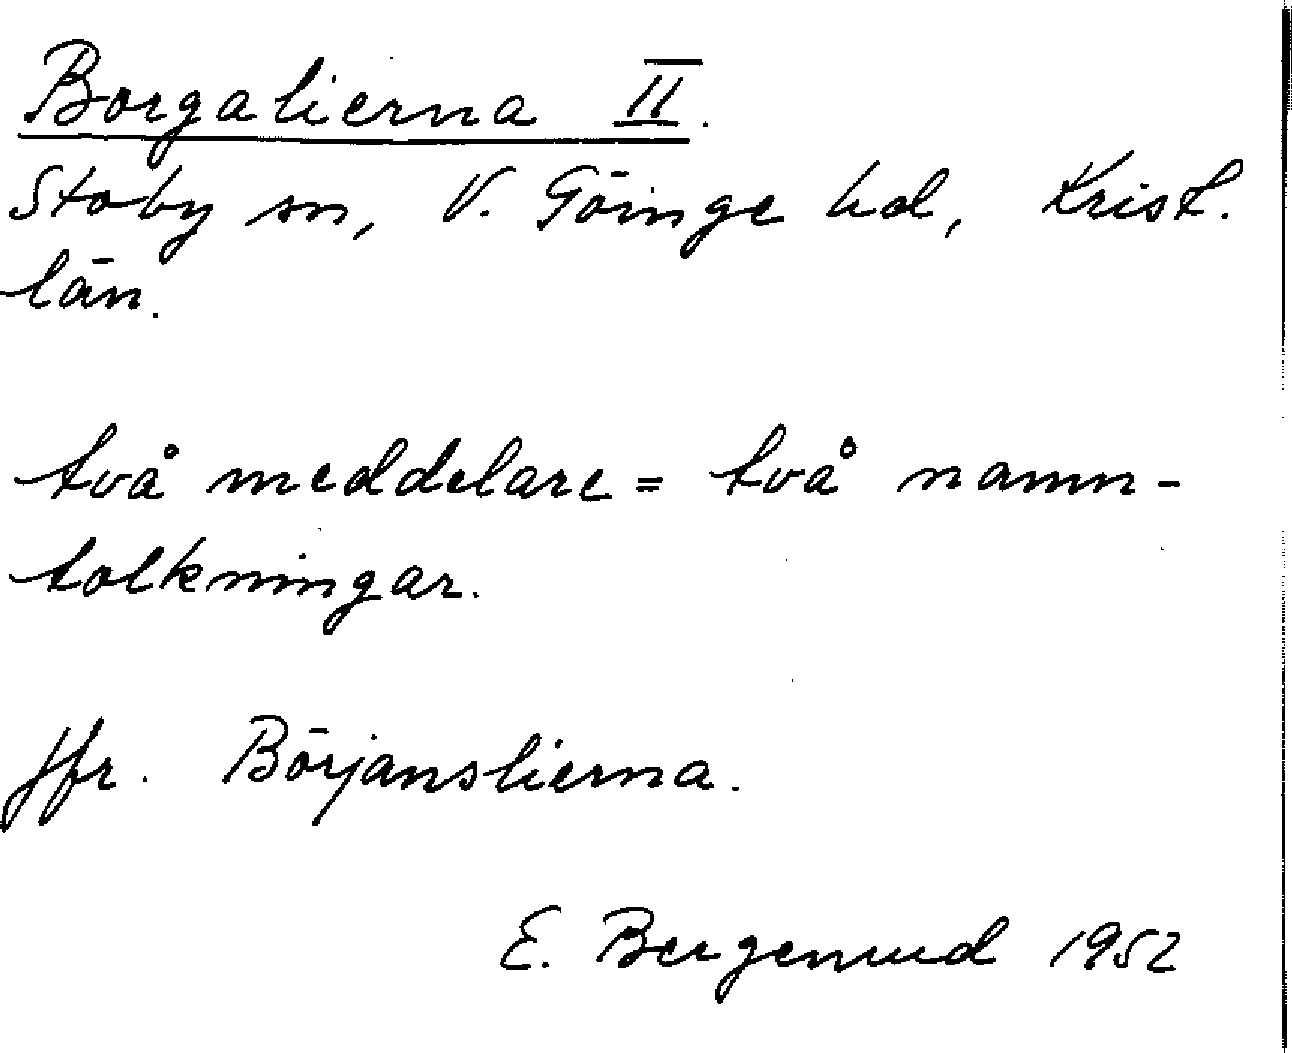 Borgalierna II.
Stoby sn, V. Göinge hd, Krist.
län.
två meddelare = två namn-
tolkningar.
Jfr. Börjanslierna.
E. Bergenrud 1952